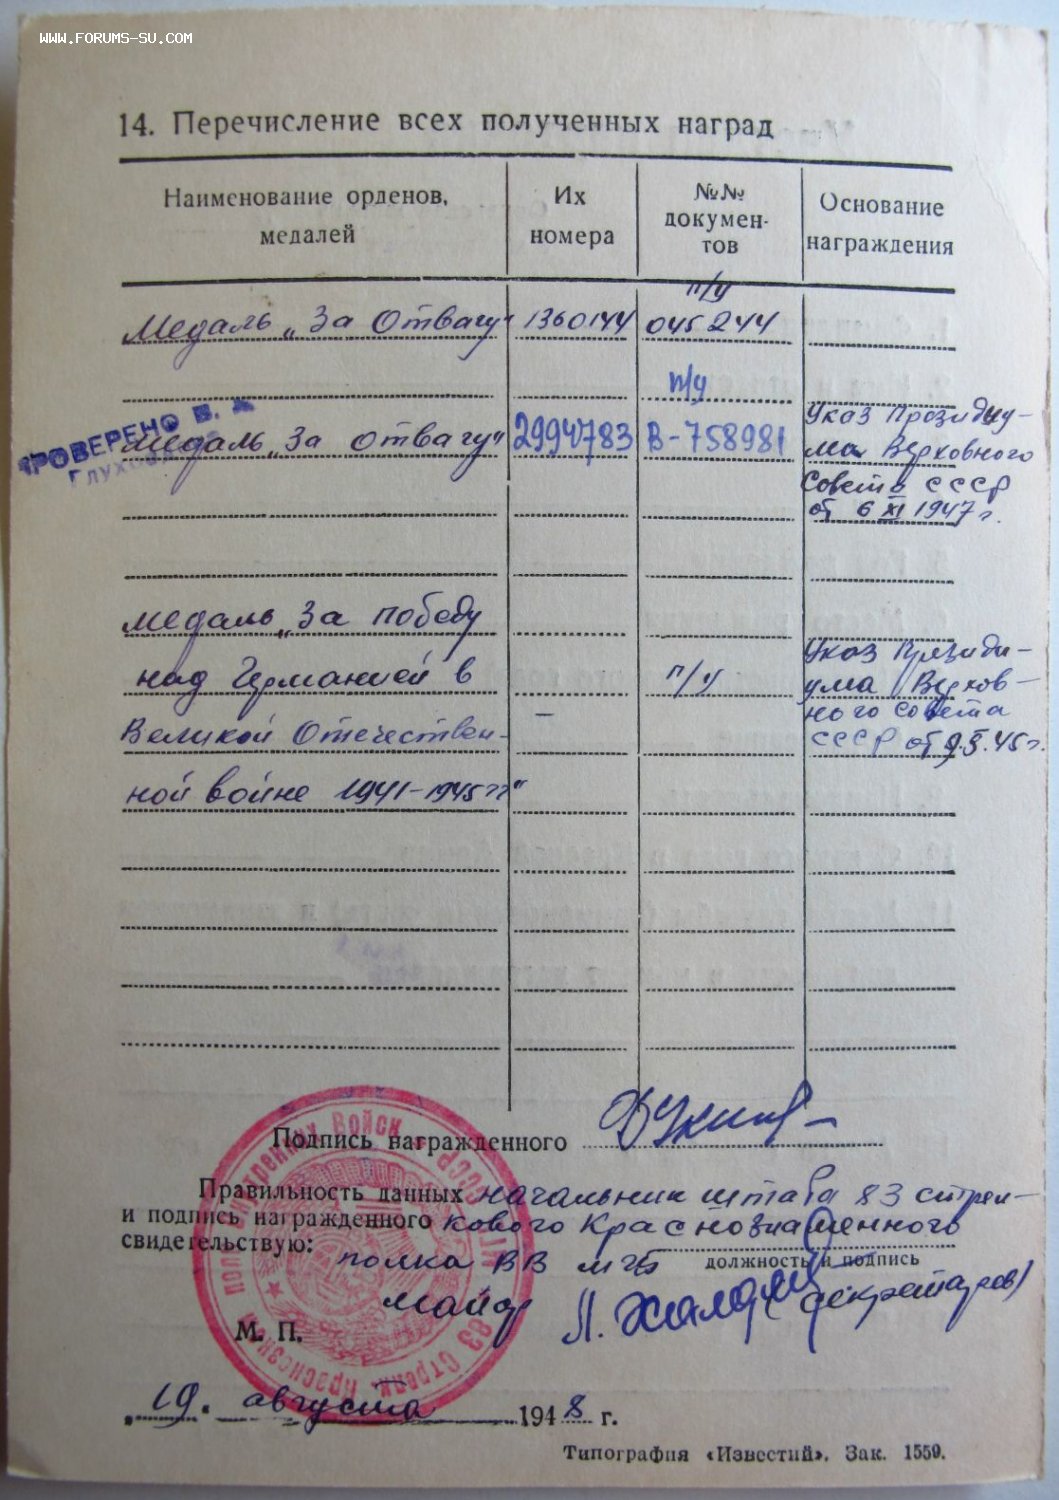 WWW.FORUMS-SU.COM
14. Перечисление всех полученных наград
Наименование орденов, медалей
Их номера
№№ документов
Основание награждения
п/у
Медаль „За Отвагу" 1360144 045244
п/у
ПРОВЕРЕНО В.
медаль „За отвагу" 2994783 В-758981
Указ Президиу-
ма Верховного
Совета СССР
от 6 XI 1947 г.
медаль „За победу
над Германией в
Великой Отечествен-
ной войне 1941-1945 гг"
—
п/у
Указ Президи-
ума Верхов-
ного Совета
СССР от 9.5.45 г.
Подпись награжденного
Правильность данных начальник штаба 83 стрел-
и подпись награжденного кового Краснознаменного
свидетельствую: полка ВВ МГБ
должность и подпись
майор
М. П.
„19." августа 1948 г.
Типография «Известий». Зак. 1559.